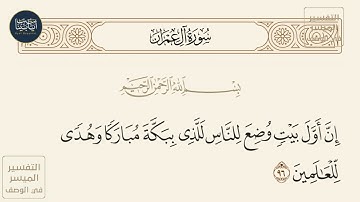 سُورَةُ آلِ عِمْرَان
التفسير
الميسر
بِسْمِ اللَّهِ الرَّحْمَٰنِ الرَّحِيمِ
إِنَّ أَوَّلَ بَيْتٍ وُضِعَ لِلنَّاسِ لَلَّذِي بِبَكَّةَ مُبَارَكًا وَهُدًى
لِّلْعَالَمِينَ ٩٦
التفسير
الميسر
في الوصف